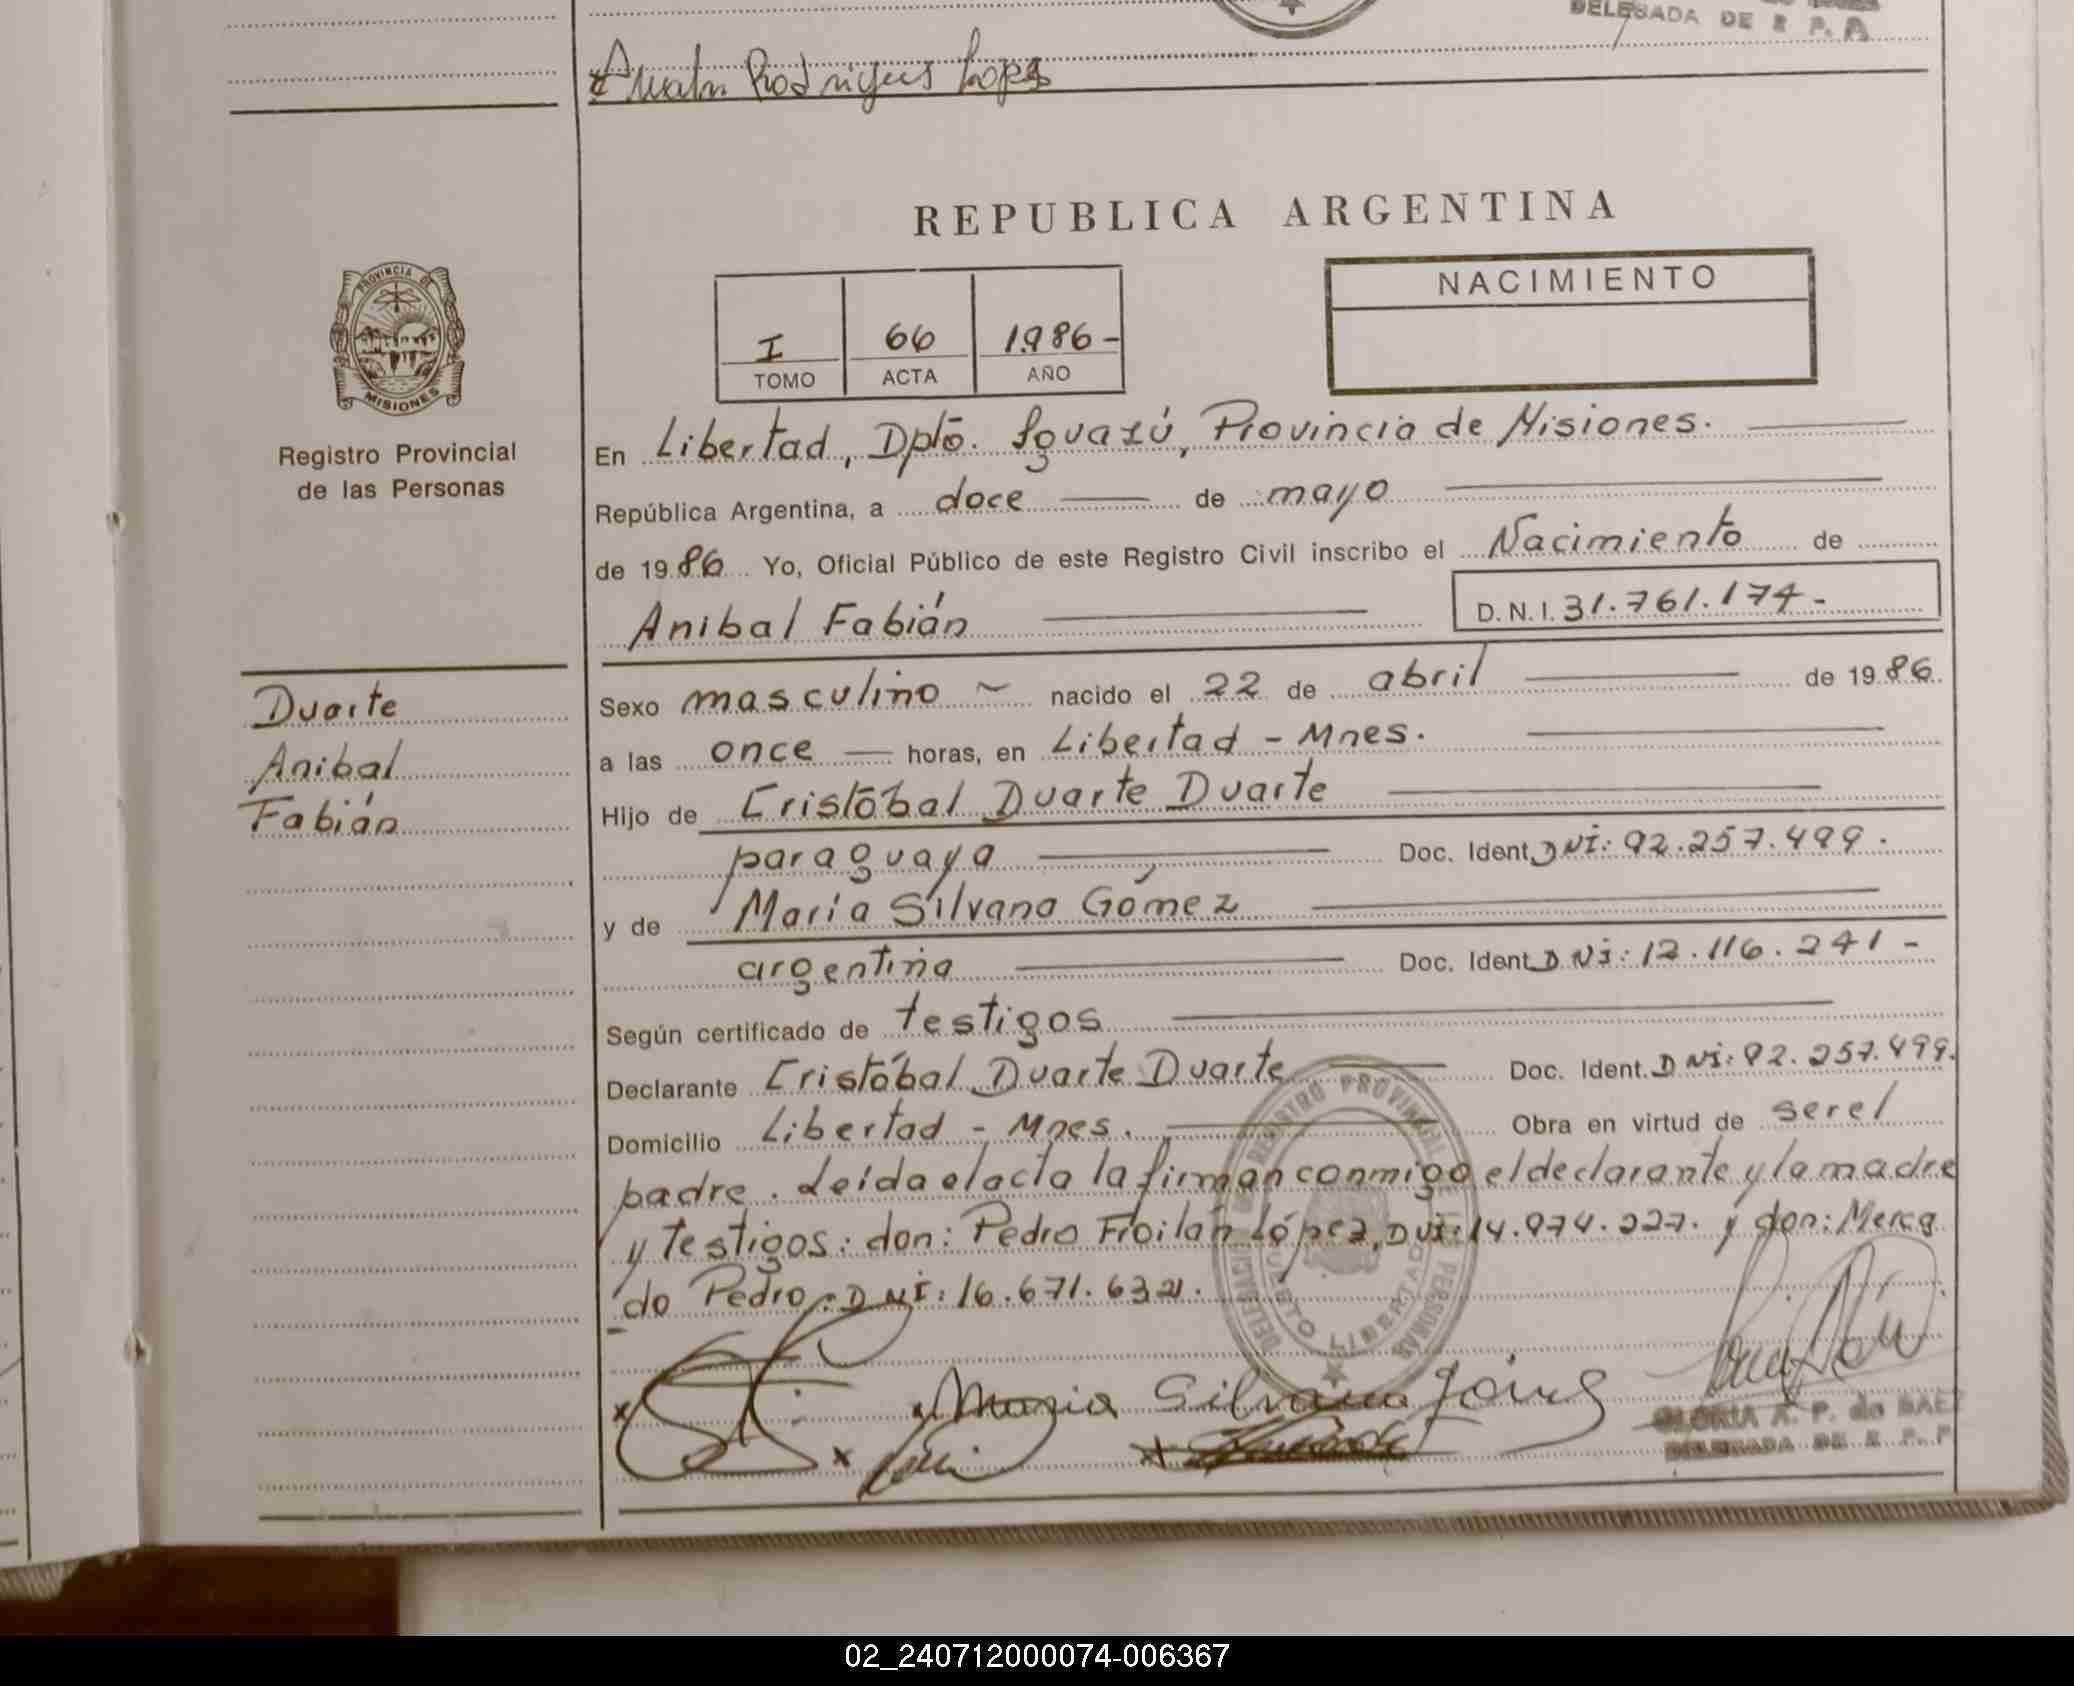 DELEGADA DE R P. P.
Rodrigues Lopes
REPUBLICA ARGENTINA
PROVINCIA DE
MISIONES
Registro Provincial
de las Personas
I 66 1.986-
TOMO ACTA AÑO
NACIMIENTO
En Libertad, Dptō. Iguazú, Provincia de Misiones.
República Argentina, a doce de mayo
de 1986 Yo, Oficial Público de este Registro Civil inscribo el Nacimiento de
Anibal Fabián D.N.I. 31.761.174-
Duarte
Anibal
Fabián
Sexo masculino ~ nacido el 22 de abril de 1986.
a las once horas, en Libertad - Mnes.
Hijo de Cristóbal Duarte Duarte
paraguaya Doc. Ident. DNI: 92.257.499.
y de María Silvana Gómez
argentina Doc. Ident. DNI: 12.116.241-
Según certificado de testigos
Declarante Cristóbal Duarte Duarte Doc. Ident. DNI: 92.257.499.
Domicilio Libertad - Mnes. Obra en virtud de serel
padre. Leída el acta la firman conmigo el declarante y la madre
y testigos: don: Pedro Froilán López, DNI: 14.974.227. y don: Merca
do Pedro: DNI: 16.671.632.
REGISTRO PROVINCIAL DE LAS PERSONAS
LIBERTAD
x x Maria Silvana Gómes
x x
GLORIA A. P. de BAEZ
DELEGADA DE R. P. P.
02_240712000074-006367